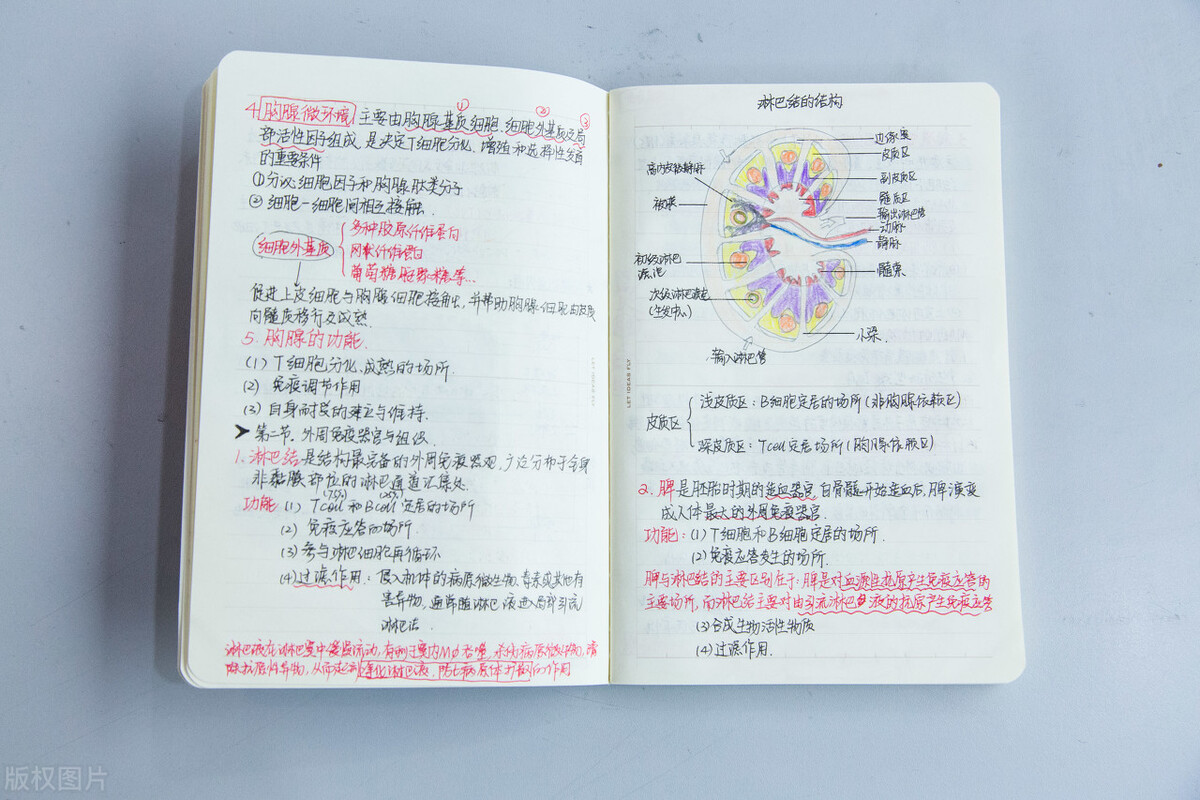 4. 胸腺微环境 主要由胸腺基质细胞、细胞外基质及局
① ② ③
部活性因子组成,是决定T细胞分化、增殖和选择性发育
的重要条件
①分泌细胞因子和胸腺肽类分子
②细胞-细胞间相互接触.
细胞外基质
多种胶原纤维蛋白
网状纤维蛋白
葡萄糖胺聚糖等...
促进上皮细胞与胸腺细胞接触,并帮助胸腺细胞由皮质
向髓质移行及成熟.
5. 胸腺的功能.
(1) T细胞分化、成熟的场所.
(2) 免疫调节作用
(3) 自身耐受的建立与维持.
第二节. 外周免疫器官与组织.
1. 淋巴结 是结构最完备的外周免疫器官,广泛分布于全身
非黏膜部位的淋巴通道汇集处.
功能 (1) Tcell (75%) 和 Bcell (25%) 定居的场所
(2) 免疫应答的场所.
(3) 参与淋巴细胞再循环
(4) 过滤作用: 侵入机体的病原微生物、毒素或其他有
害异物,通常随淋巴液进局部引流
淋巴结.
淋巴液在淋巴窦中缓慢流动,有利于窦内Mφ吞噬、杀伤病原微生物,清
除抗原性异物,从而起到净化淋巴液,防止病原体扩散的作用
LET IDEAS FLY
淋巴结的结构
边缘窦
皮质区
副皮质区
髓质区
输出淋巴管
动脉
静脉
髓索
小梁.
高内皮微静脉
被膜
初级淋巴
滤泡
次级淋巴滤泡
(生发中心)
输入淋巴管
皮质区
浅皮质区: B细胞定居的场所(非胸腺依赖区)
深皮质区: Tcell定居场所(胸腺依赖区)
2. 脾 是胚胎时期的造血器官,自骨髓开始造血后,脾演变
成人体最大的外周免疫器官.
功能: (1) T细胞和B细胞定居的场所.
(2) 免疫应答发生的场所.
脾与淋巴结的主要区别在于: 脾是对血源性抗原产生免疫应答的
主要场所,而淋巴结主要对由引流淋巴液的抗原产生免疫应答
(3) 合成生物活性物质
(4) 过滤作用.
版权图片